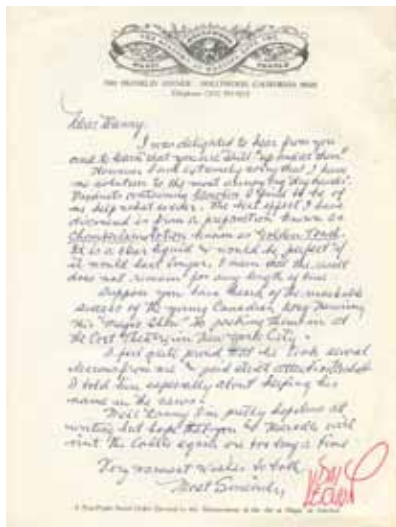 THE ACADEMY OF MAGICAL ARTS, INC.
7001 FRANKLIN AVENUE HOLLYWOOD, CALIFORNIA
Telephone (213)
Dear Danny,
I was delighted to hear from you
and to learn that you are still "up and at them"
However I am extremely sorry that I have
no solution to the most annoying "dry hands".
Products containing I find to be of
no help whatsoever. The best effect I have
discovered is from a preparation known as
Chamberlain Lotion known as "Golden Touch".
It is a clear liquid & would be perfect if
it would last longer. I mean that the result
does not remain for any length of time.
Suppose you have heard of the remarkable
success of the young Canadian, Doug Henning
His "Magic Show" is packing them in at
the Cort Theatre in New York City.
I feel quite proud that he took several
lessons from me & paid strict attention
I told him especially about keeping his
name in the news.
Well Danny I'm pretty hopeless at
writing but hope that you & will
visit the Castle again one day
Very warmest wishes to both
Most Sincerely